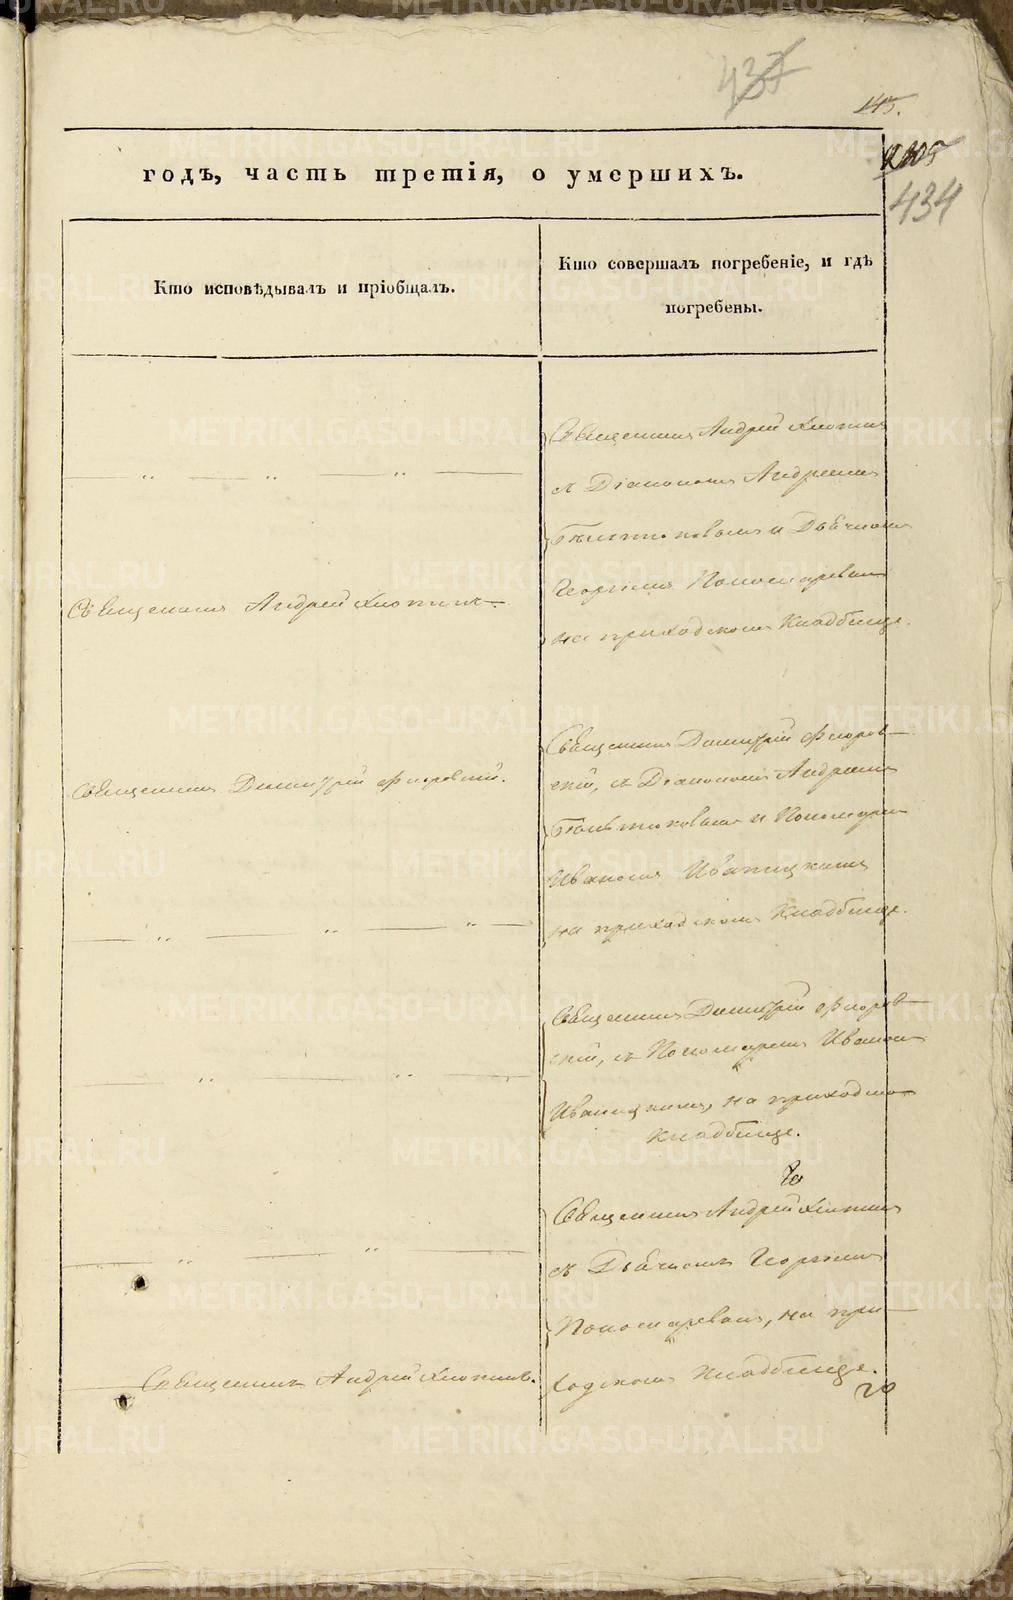 437
45.
годъ, часть третія, о умершихъ.
434
Кто исповѣдывалъ и пріобщалъ.
Кто совершалъ погребеніе, и гдѣ
погребены.
Священникъ Андрей
съ Діакономъ Андреемъ
и Дьячкомъ
Георгіемъ Пономаревымъ
на приходскомъ Кладбище.
Священникъ Андрей
Священникъ Димитрій Флоров-
скій, съ Діакономъ Андреемъ
и Пономаремъ
Иваномъ Иваницкимъ
на приходскомъ Кладбище.
Священникъ Димитрій Флоровскій.
Священникъ Димитрій Флоров-
скій, съ Пономаремъ Иваномъ
Иваницкимъ, на приходскомъ
Кладбище.
Священникъ Андрей
съ Дьячкомъ Георгіемъ
Пономаревымъ, на при-
ходскомъ Кладбище.
Священникъ Андрей
METRIKI.GASO-URAL.RU